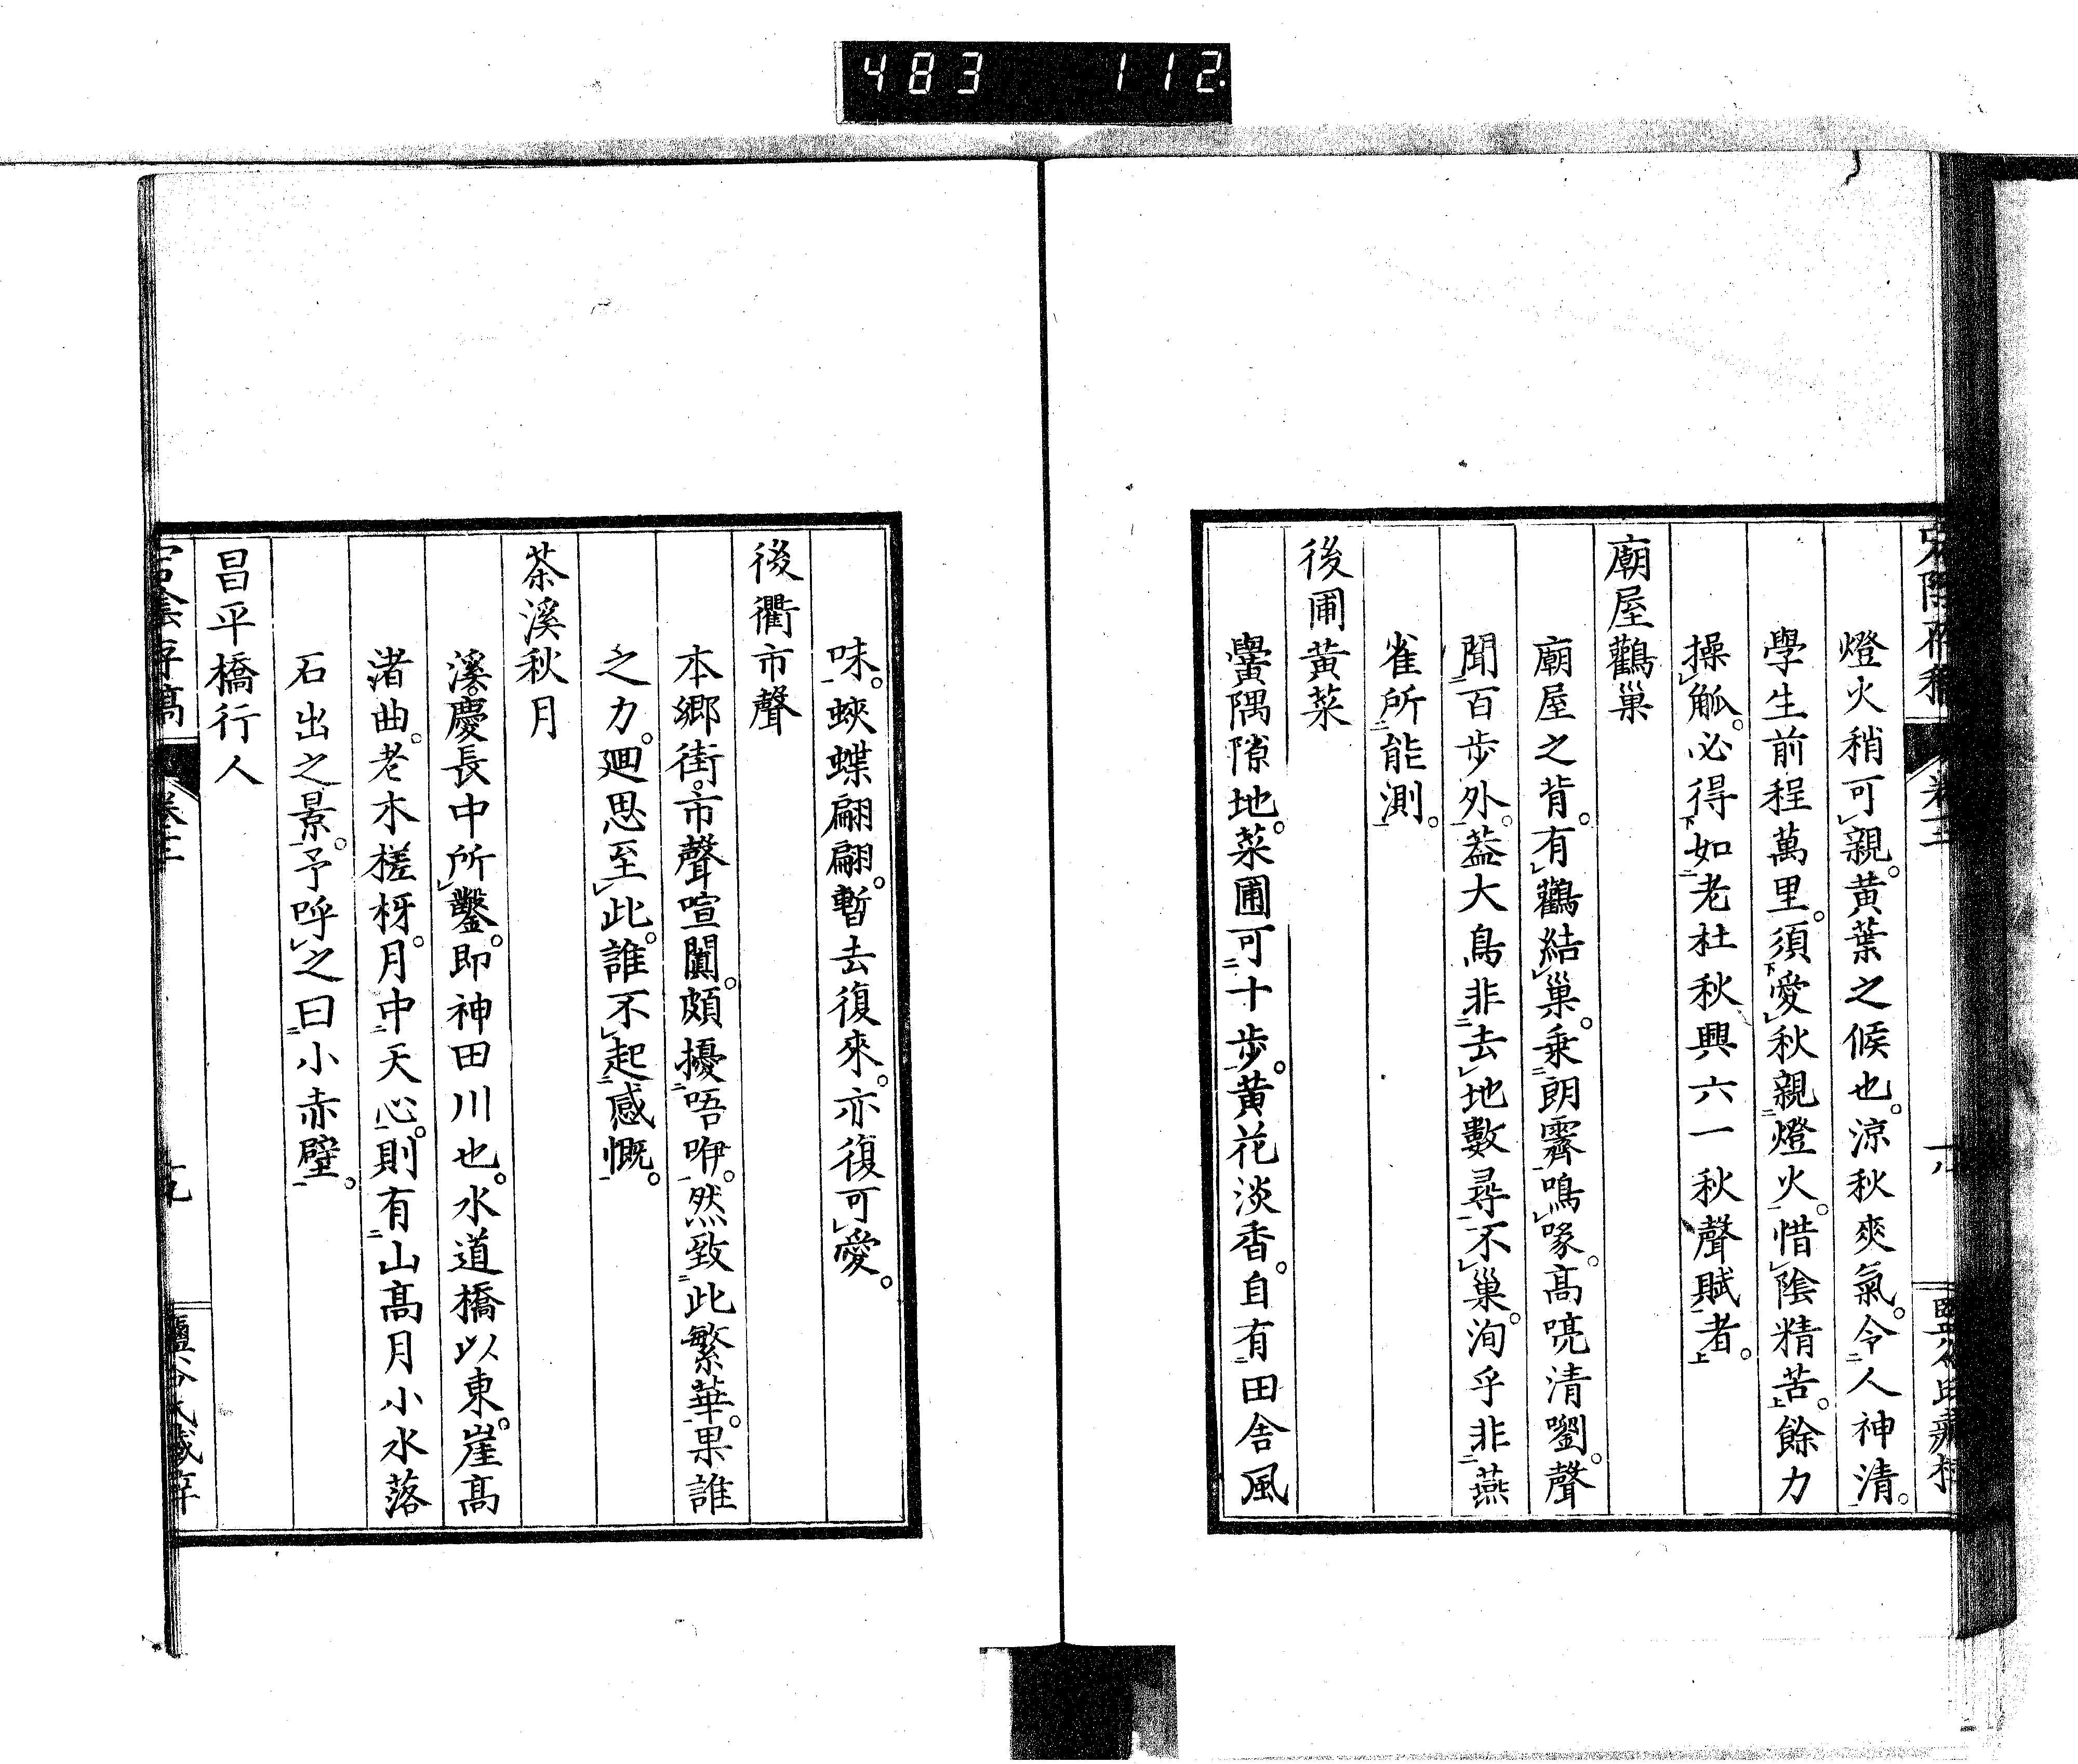 483 112
燈火稍可㆑親。黃葉之候也。涼秋爽氣。令㆓人神清㆒。
學生前程萬里。須㆘愛㆑秋親㆓燈火㆒。惜㆑陰精苦㆖。餘力
操㆑觚。必得㆘如㆓老杜秋興六一秋聲賦㆒者㆖。
廟屋鸛巢
廟屋之背。有㆑鸛結㆑巢。乗㆓朗霽㆒鳴㆑喙。高喨清嚠。聲
聞㆓百步外㆒。葢大鳥非㆓去㆑地數尋㆒不㆑巢。洵乎非㆓燕
雀所㆓能測㆒。
後圃黃菜
黌隅隙地。菜圃可㆓十步㆒。黃花淡香。自有㆓田舍風
味㆒。蛺蝶翩翩。暫去復來。亦復可㆑愛。
後衢市聲
本鄉街。市聲喧闐。頗擾㆓唔咿㆒。然致㆓此繁華㆒。果誰
之力。廻思至㆑此。誰不㆑起㆓感慨㆒。
茶溪秋月
溪。慶長中所㆑鑿。即神田川也。水道橋以東。崖高
渚曲。老木槎枒。月中㆓天心㆒。則有㆓山高月小水落
石出之景㆒。予呼㆑之曰㆓小赤壁㆒。
昌平橋行人